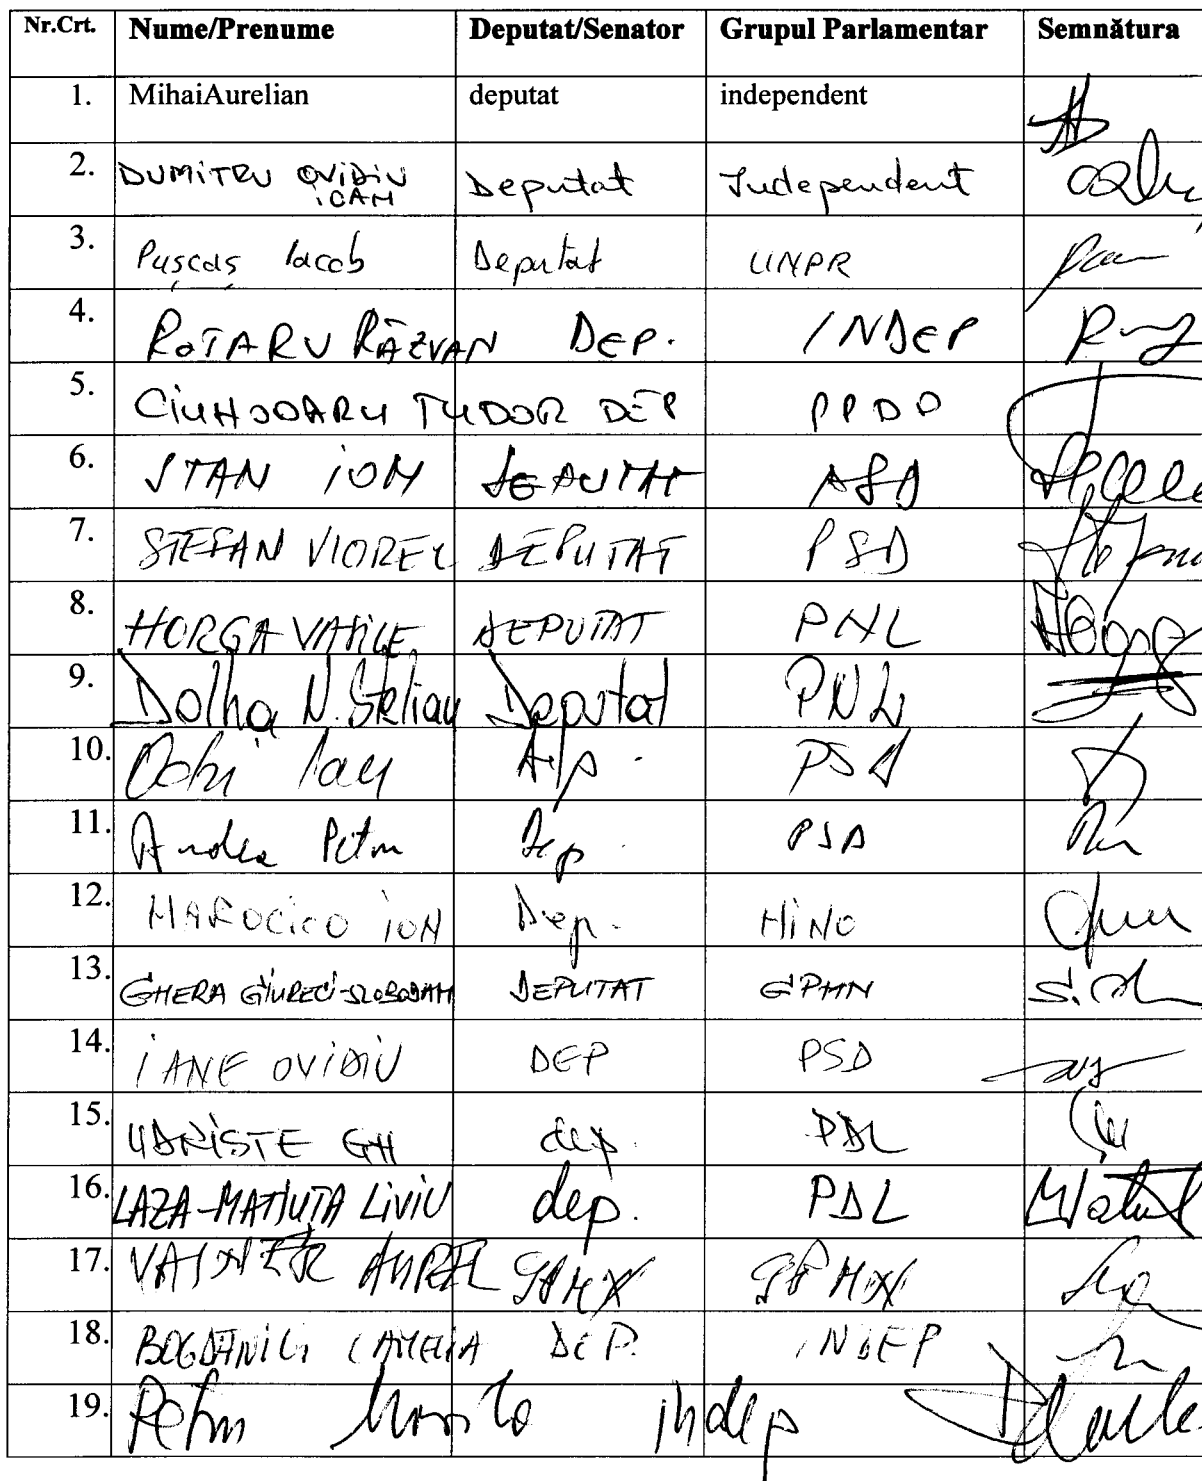 Nr.Crt. Nume/Prenume Deputat/Senator Grupul Parlamentar Semnătura
1. MihaiAurelian deputat independent
2. DUMITRU OVIDIU IOAN Deputat Independent
3. Pușcaș Iacob Deputat UNPR
4. ROTARU RĂZVAN DEP. INDEP
5. CIUHODARU TUDOR DEP PPDD
6. STAN ION DEPUTAT PSD
7. STEFAN VIOREL DEPUTAT PSD
8. HORGA VASILE DEPUTAT PNL
9. Dolha N. Stelian Deputat PNL
10. Ochi Ion Dep. PSD
11. Andea Petru Dep. PSD
12. MAROCICO ION Dep. MINO
13. GHERA GIURECI-SLOBODAN DEPUTAT GPMN
14. IANE OVIDIU DEP PSD
15. UDRISTE GH dep. PDL
16. LAZA-MATIUTA LIVIU dep. PDL
17. VAINER AUREL
18. BOGDANICI CAMELIA DEP. INDEP
19. Petru indep